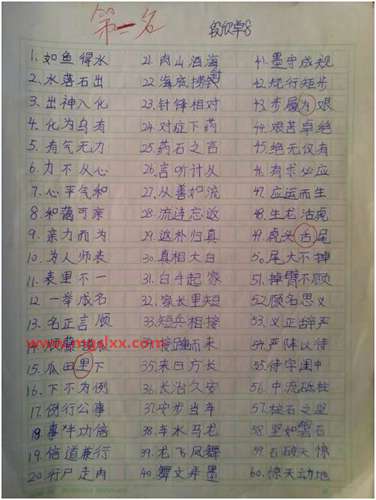 第一名
1.如鱼得水
2.水落石出
3.出神入化
4.化为乌有
5.有气无力
6.力不从心
7.心平气和
8.和蔼可亲
9.亲力而为
10.为人师表
11.表里不一
12.一举成名
13.名正言顺
14.
15.瓜田里下
16.下不为例
17.例行公事
18.事半功倍
19.倍道兼行
20.行尸走肉
21.肉山酒海
22.海底捞针
23.针锋相对
24.对症下药
25.药石之言
26.言听计从
27.从善如流
28.流连忘返
29.返朴归真
30.真相大白
31.白手起家
32.家长里短
33.短兵相接
34.接踵而来
35.来日方长
36.长治久安
37.安步当车
38.车水马龙
39.龙飞凤舞
40.舞文弄墨
41.墨守成规
42.规行矩步
43.步履为艰
44.艰苦卓绝
45.绝无仅有
46.有求必应
47.应运而生
48.生龙活虎
49.虎头舌尾
50.尾大不掉
51.掉臂不顾
52.顾名思义
53.义正辞严
54.严阵以待
55.待字闺中
56.中流砥柱
57.柱石之坚
58.坚如磐石
59.石破天惊
60.惊天动地